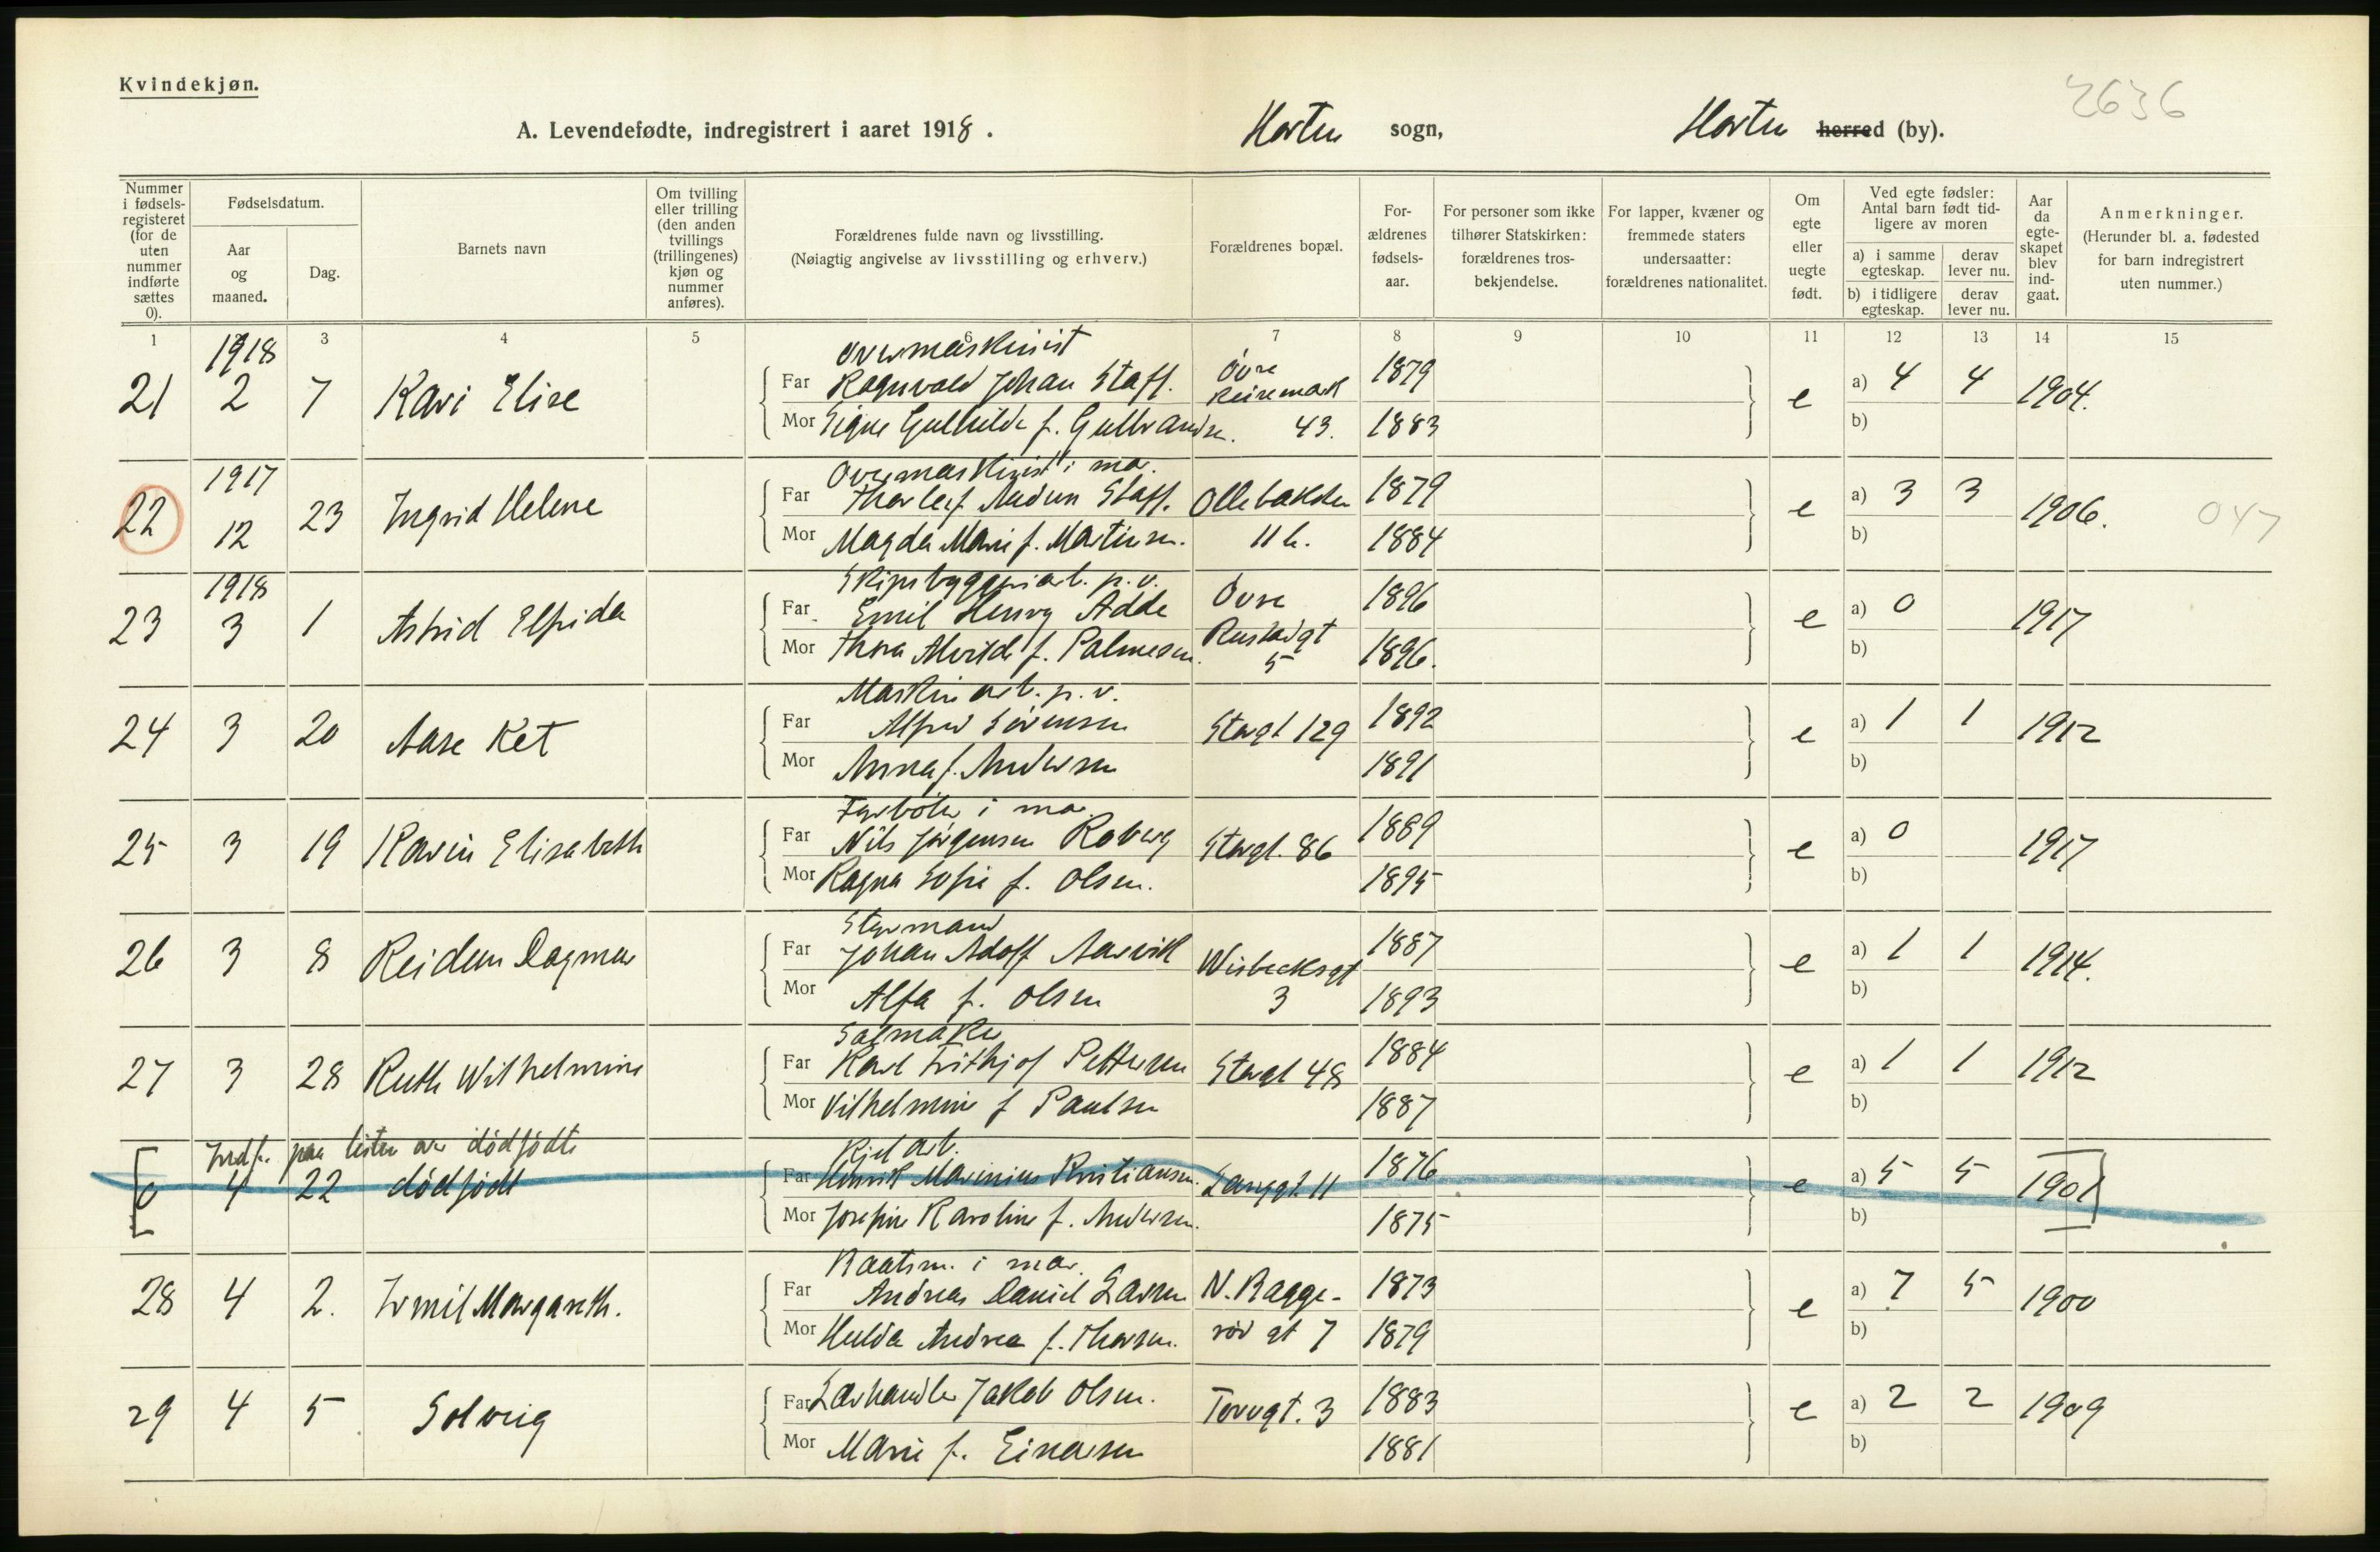 Kvindekjøn.
2636
A. Levendefødte, indregistrert i aaret 1918. Horten sogn, Horten herred (by).
Nummer i fødsels-registeret (for de uten nummer indførte sættes 0).
Fødselsdatum.
Aar og maaned.
Dag.
Barnets navn
Om tvilling eller trilling (den anden tvillings (trillingenes) kjøn og nummer anføres).
Forældrenes fulde navn og livsstilling.
(Nøiagtig angivelse av livsstilling og erhverv.)
Forældrenes bopæl.
For-ældrenes fødsels-aar.
For personer som ikke tilhører Statskirken: forældrenes tros-bekjendelse.
For lapper, kvæner og fremmede staters undersaatter: forældrenes nationalitet.
Om egte eller uegte født.
Ved egte fødsler: Antal barn født tid-ligere av moren
a) i samme egteskap.
derav lever nu.
b) i tidligere egteskap.
derav lever nu.
Aar da egte-skapet blev ind-gaat.
Anmerkninger.
(Herunder bl. a. fødested for barn indregistrert uten nummer.)
1 3 4 5 6 7 8 9 10 11 12 13 14 15
1918 Overmaskinist
21 2 7 Kari Elise Far Ragnvald Johan Staff. Øvre Keisemark 1879 e a) 4 4 1904.
Mor Signe Gulhilde f. Gulbrandsen. 43. 1883 b)
1917 Overmaskinist i mar.
22 12 23 Ingrid Helene Far Thorleif Audun Staff. Ollebakken 1879 e a) 3 3 1906. 047
Mor Magda Marie f. Martinsen. 11 b. 1884 b)
1918 Skipsbyggeriarb. p. v.
23 3 1 Astrid Elfrida Far Emil Henry Adde Øvre 1896 e a) 0 1917
Mor Thora Alvilde f. Palmesen. Rustadgt 5 1896. b)
Maskinarb. p. v.
24 3 20 Aase Ket Far Alfred Sørensen Storgt 129 1892 e a) 1 1 1912
Mor Anna f. Andersen 1891 b)
Fyrbøter i mar.
25 3 19 Karin Elisabeth Far Nils Jørgensen Roberg Storgt. 86 1889 e a) 0 1917
Mor Ragna Sofie f. Olsen. 1895 b)
Styrmand
26 3 8 Reidun Dagmar Far Johan Adolf Aarvik Wisbecksgt 1887 e a) 1 1 1914.
Mor Alfa f. Olsen 3 1893 b)
Salmaker
27 3 28 Ruth Wilhelmine Far Karl Frithjof Pettersen Storgt 48 1884 e a) 1 1 1912
Mor Vilhelmine f Paulsen 1887 b)
Indf. paa listen over dødfødte
Kjelarb.
0 4 22 dødfødt Far Henrik Marinius Kristiansen. Langgt. 11 1876 e a) 5 5 1901
Mor Josefine Karoline f. Andersen. 1875 b)
Baatsm. i mar.
28 4 2. Irmil Margareth. Far Andreas Daniel Larsen N. Bagge- 1873 e a) 7 5 1900
Mor Hulda Andrea f. Thorsen. rød gt 7 1879 b)
29 4 5 Solveig Far Lærhandler Jakob Olsen. Torvgt. 3 1883 e a) 2 2 1909
Mor Marie f. Einarsen 1881 b)